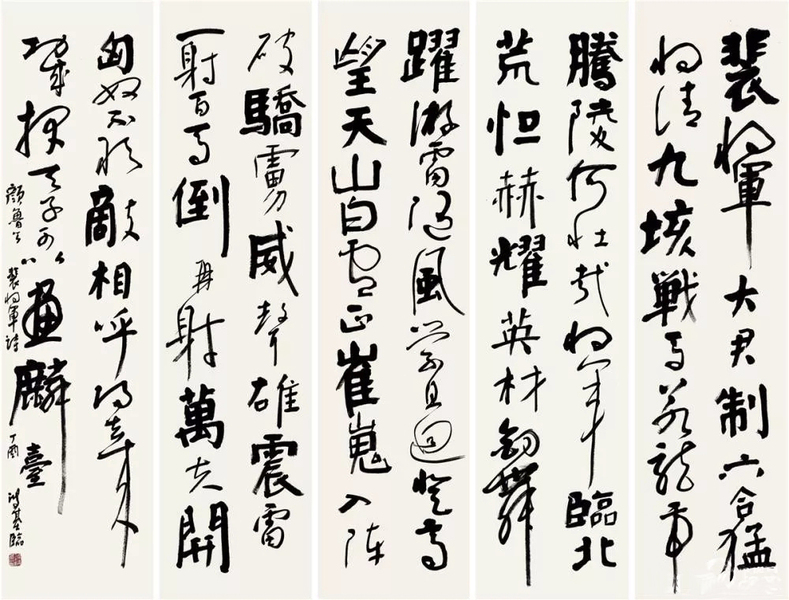 裴将軍大君制六合猛
将清九垓戰馬若龍虎
騰陵何壯哉将軍臨北
荒怛赫耀英材劍舞
躍游雷隨風縈且迴登高
望天山白雪正崔嵬入陣
破驕虜威聲雄震雷
一射百馬倒再射萬夫開
匈奴不敢敵相呼歸去來
功成報天子可以畫麟臺
顏魯公裴将軍詩
丁酉 基臨